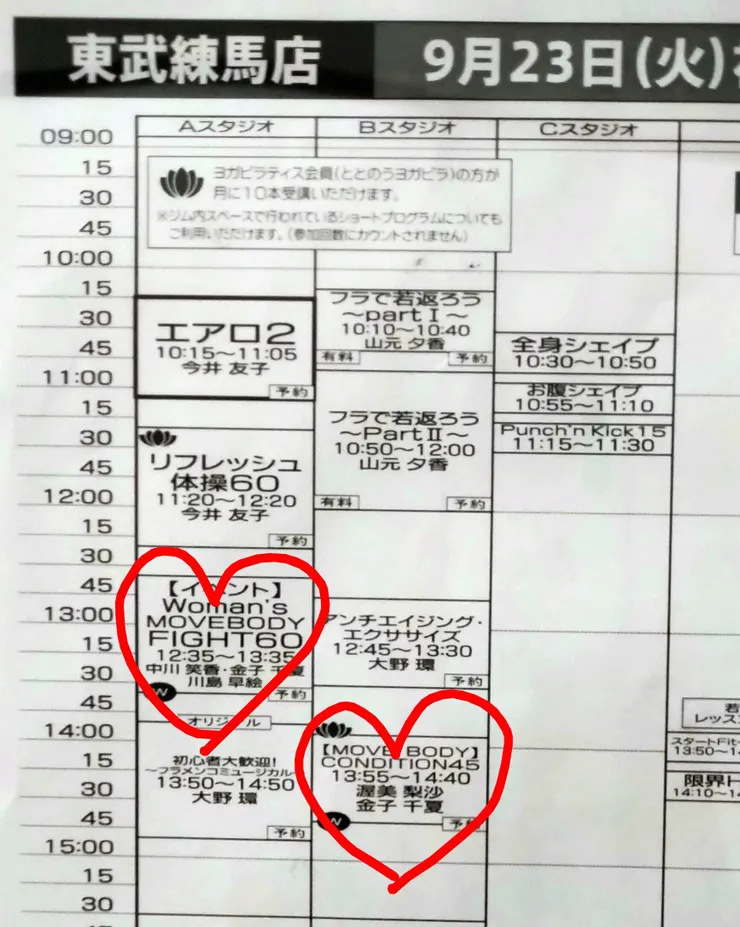 東武練馬店 9月23日(火)
Aスタジオ Bスタジオ Cスタジオ
09:00
15
30
45
10:00
15
30
45
11:00
15
30
45
12:00
15
30
45
13:00
15
30
45
14:00
15
30
45
15:00
15
30
ヨガピラティス会員(ととのうヨガピラ)の方が
月に10本受講いただけます。
※ジム内スペースで行われているショートプログラムについても
ご利用いただけます。(参加回数にカウントされません)
エアロ2
10:15〜11:05
今井 友子
予約
リフレッシュ
体操60
11:20〜12:20
今井 友子
予約
【イベント】
Woman's
MOVEBODY
FIGHT60
12:35〜13:35
中川 笑香・金子 千夏
川島 早絵
W
予約
オリジナル
初心者大歓迎!
〜フラメンコミュージカル〜
13:50〜14:50
大野 環
予約
フラで若返ろう
〜partⅠ〜
10:10〜10:40
山元 夕香
有料 予約
フラで若返ろう
〜PartⅡ〜
10:50〜12:00
山元 夕香
有料 予約
アンチエイジング・
エクササイズ
12:45〜13:30
大野 環
予約
【MOVE BODY】
CONDITION45
13:55〜14:40
渥美 梨沙
金子 千夏
W
予約
全身シェイプ
10:30〜10:50
お腹シェイプ
10:55〜11:10
Punch'n Kick15
11:15〜11:30
若
レッス
スタートFit
13:50〜1
限界ト
14:10〜14